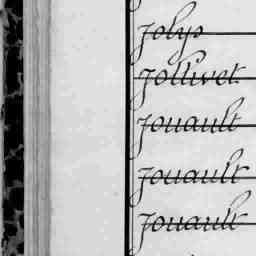 Jolys
Jollivet
Jouault
Jouault
Jouault